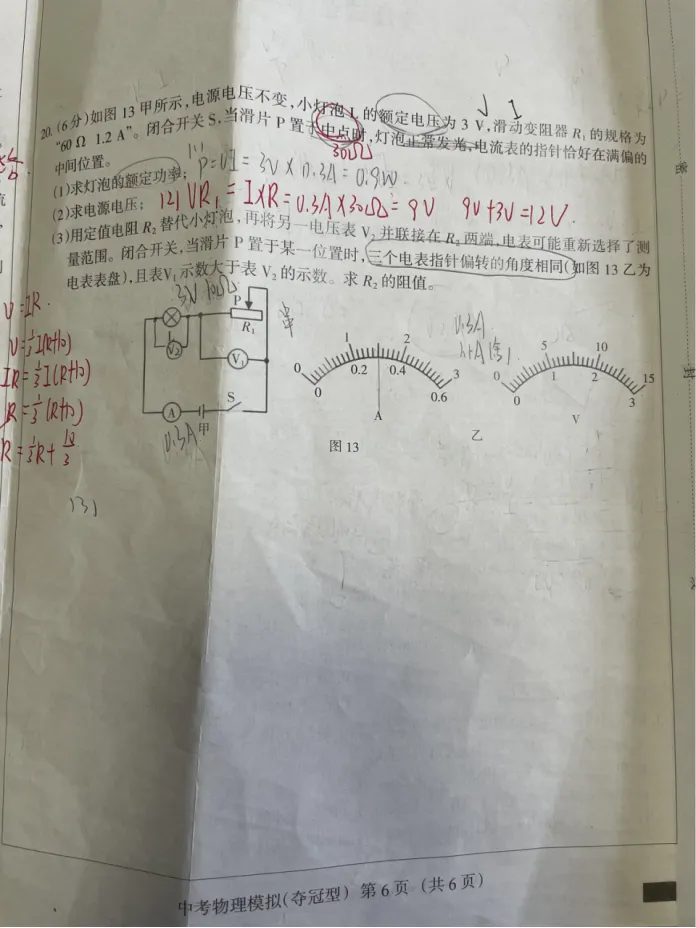 20. (6分)如图13甲所示,电源电压不变,小灯泡L的额定电压为3 V,滑动变阻器R₁的规格为
“60 Ω 1.2 A”。闭合开关S,当滑片P置于中点时,灯泡正常发光,电流表的指针恰好在满偏的
中间位置。
30Ω
(1)求灯泡的额定功率; P=UI=3V×0.3A=0.9W
(2)求电源电压; (2)UR₁=I×R=0.3A×30Ω=9V 9V+3V=12V.
(3)用定值电阻R₂替代小灯泡,再将另一电压表V₂并联接在R₂两端,电表可能重新选择了测
量范围。闭合开关,当滑片P置于某一位置时,三个电表指针偏转的角度相同(如图13乙为
电表表盘),且表V₁示数大于表V₂的示数。求R₂的阻值。
U=IR.
3V 10Ω
P
R₁
V₂
V₁
S
A
甲
0.3A
串
0 1 2 3
0 0.2 0.4 0.6
A
0.3A
0 5 10 15
0 1 2 3
V
乙
图13
中考物理模拟(夺冠型) 第6页(共6页)